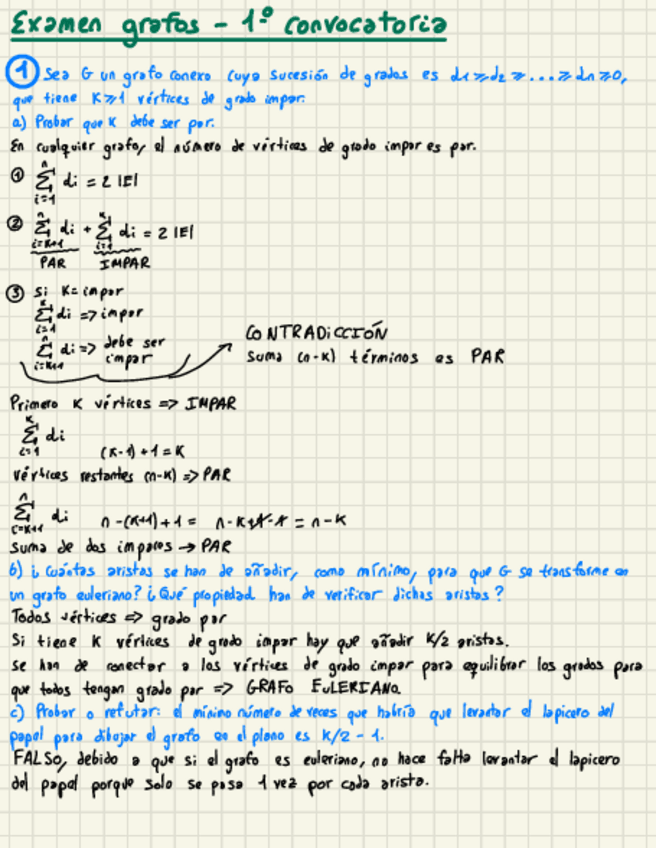 Examen grafos - 1º convocatoria
① Sea G un grafo conexo cuya sucesión de grados es d1 ≥ d2 ≥ ... ≥ dn ≥ 0,
que tiene K ≥ 1 vértices de grado impar.
a) Probar que K debe ser par.
En cualquier grafo, el número de vértices de grado impar es par.
① n Σ i=1 di = 2 |E|
② n Σ i=K+1 di + K Σ i=1 di = 2 |E|
PAR IMPAR
③ Si K = impar
K Σ i=1 di => impar
n Σ i=K+1 di => debe ser impar
CONTRADICCIÓN
suma (n-K) términos es PAR
Primero K vértices => IMPAR
K Σ i=1 di
(K-1) + 1 = K
vértices restantes (n-K) => PAR
n Σ i=K+1 di n-(K+1)+1 = n-K+1-1 = n-K
suma de dos impares → PAR
b) ¿Cuántas aristas se han de añadir, como mínimo, para que G se transforme en
un grafo euleriano? ¿Qué propiedad han de verificar dichas aristas?
Todos vértices => grado par
Si tiene K vértices de grado impar hay que añadir K/2 aristas.
Se han de conectar a los vértices de grado impar para equilibrar los grados para
que todos tengan grado par => GRAFO EULERIANO.
c) Probar o refutar: el mínimo número de veces que habría que levantar el lapicero del
papel para dibujar el grafo en el plano es K/2 - 1.
FALSO, debido a que si el grafo es euleriano, no hace falta levantar el lapicero
del papel porque solo se pasa 1 vez por cada arista.